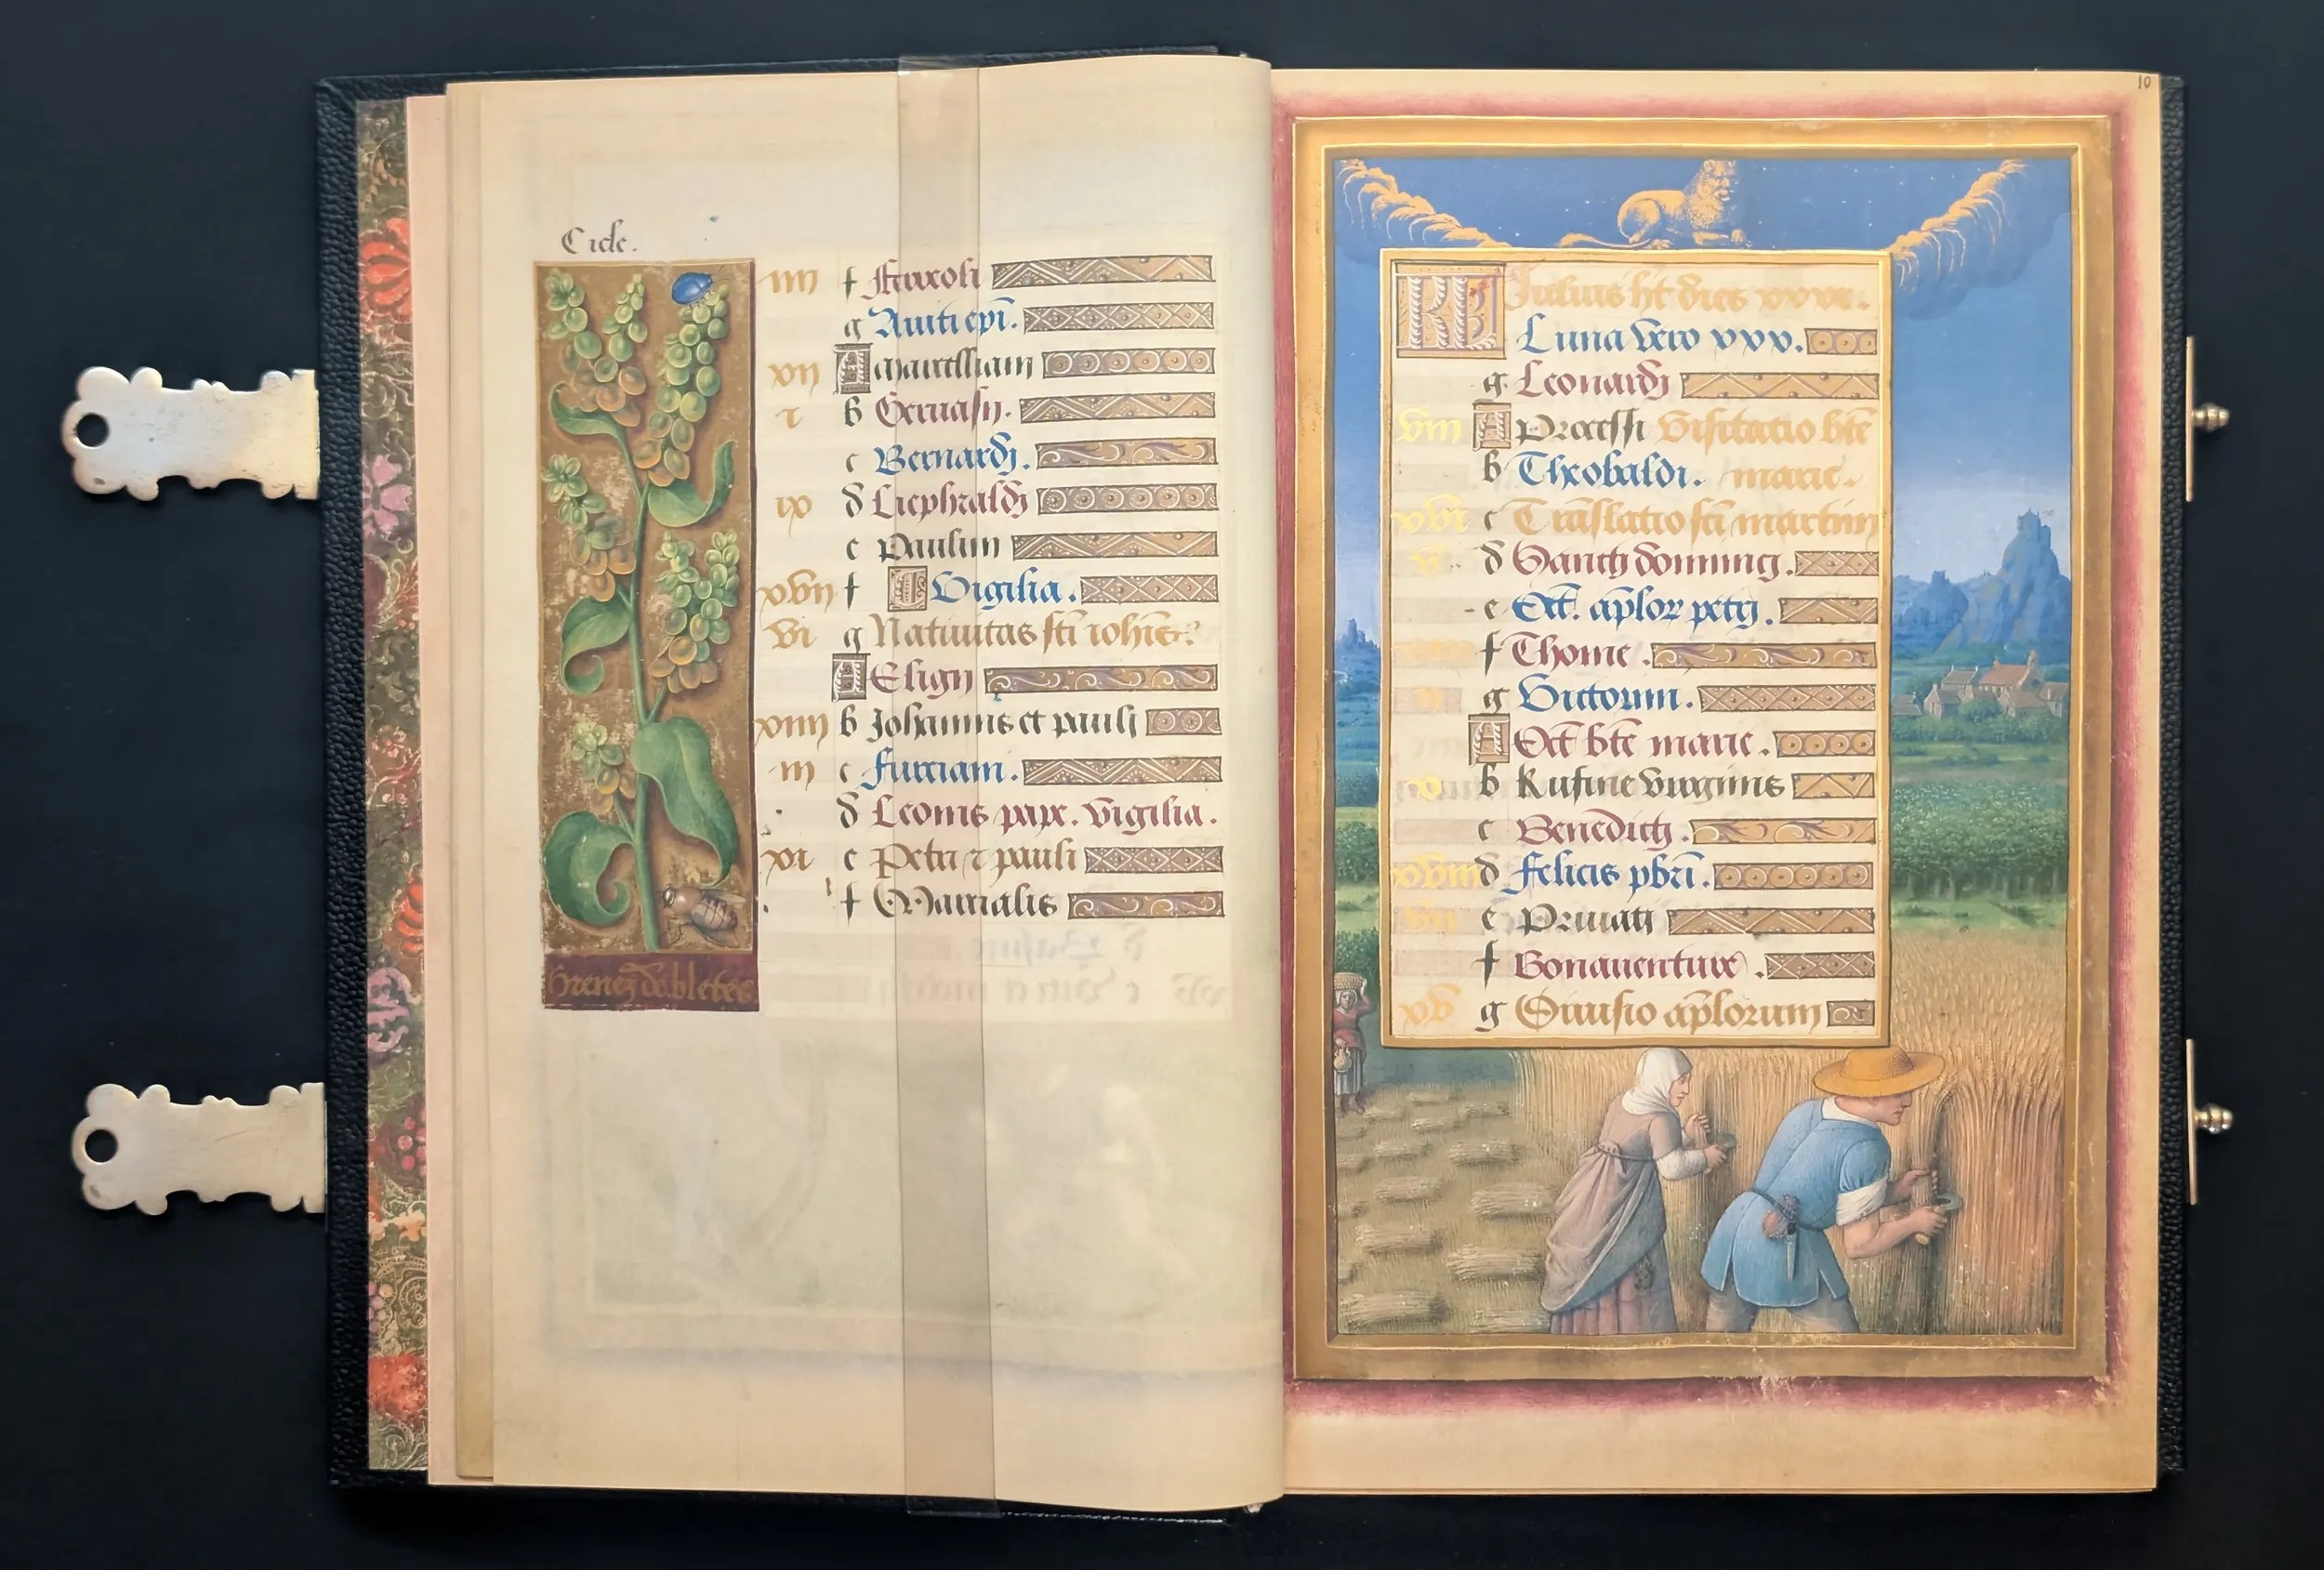 Cicle.
iiii f Ferreoli
g Auiti epi.
xvii A Marcelliani
i b Geruasii.
c Bernardi.
ix d Liephraldi
e Paulini
xvii f Vigilia.
vi g Natiuitas sti iohis.
A Eligii
xiiii b Johannis et pauli
iii c Furciani.
d Leonis pape. Vigilia.
xi e Petri z pauli
f Marcialis
Grenes de bletes
10
KL Julius ht dies xxxi.
Luna vero xxx.
g Leonardi
viii A Processi Visitatio bte
b Theobaldi. marie.
xvi c Traslatio sti martini
v d Sancti dominici.
e Oct. aplor petri.
f Thome.
ii g Victorum.
A Oct bte marie.
x b Rufine virginis
c Benedicti.
xviii d Felicis pbri.
vii e Priuati
f Bonauenture.
xv g Diuisio aplorum